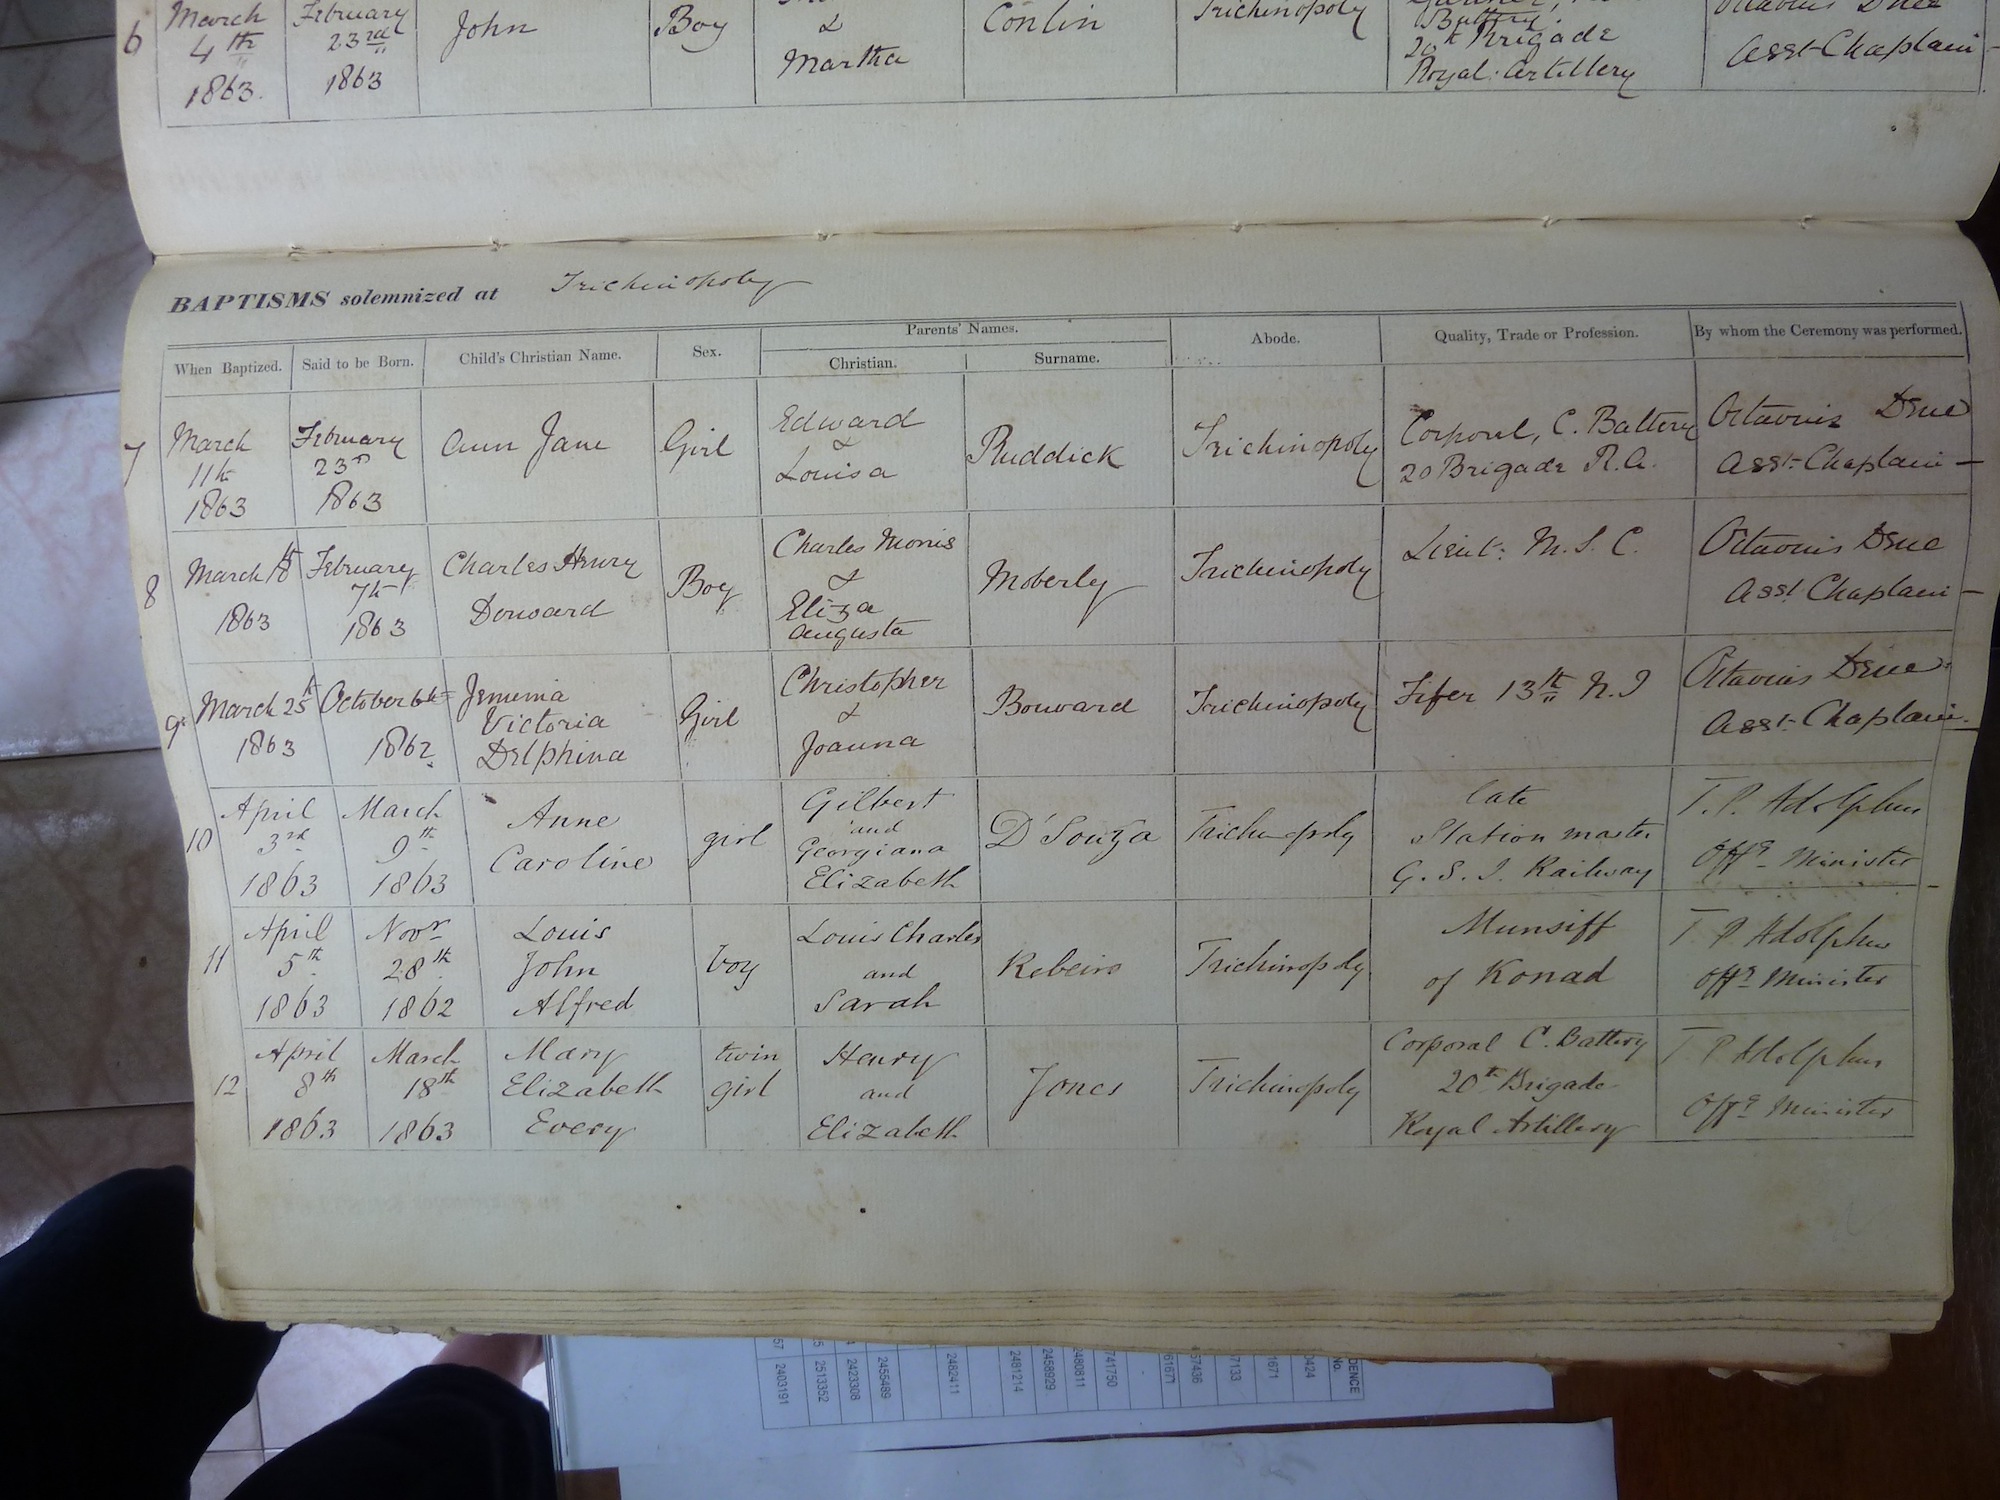 6
March
4th
1863.
February
23rd
1863
John
Boy
&
Martha
Conlin
Trichinopoly
Battery.
20th Brigade
Royal Artillery
Asst Chaplain
BAPTISMS solemnized at Trichinopoly
When Baptized.
Said to be Born.
Child's Christian Name.
Sex.
Parents' Names.
Christian.
Surname.
Abode.
Quality, Trade or Profession.
By whom the Ceremony was performed.
7
March
11th
1863
February
23rd
1863
Ann Jane
Girl
Edward
&
Louisa
Ruddick
Trichinopoly
Corporal, C. Battery
20 Brigade R.A.
Octavius Dene
Asst Chaplain
8
March 18th
1863
February
7th
1863
Charles Henry
Donward
Boy
Charles Morris
&
Eliza
Augusta
Moberly
Trichinopoly
Lieut: M.S.C.
Octavius Dene
Asst Chaplain
9
March 25th
1863
October 6th
1862
Jemima
Victoria
Delphina
Girl
Christopher
&
Joanna
Bouward
Trichinopoly
Fifer 13th N.I
Octavius Dene
Asst Chaplain
10
April
3rd
1863
March
9th
1863
Anne
Caroline
girl
Gilbert
and
Georgiana
Elizabeth
D'Souza
Trichinopoly
late
Station master
G.S.I. Railway
T.P. Adolphus
Offg Minister
11
April
5th
1863
Novr
28th
1862
Louis
John
Alfred
boy
Louis Charles
and
Sarah
Rebeiro
Trichinopoly
Munsiff
of Konad
T P Adolphus
Offg Minister
12
April
8th
1863
March
18th
1863
Mary
Elizabeth
Every
twin
girl
Henry
and
Elizabeth
Jones
Trichinopoly
Corporal C. Battery
20th Brigade
Royal Artillery
T P Adolphus
Offg Minister
2403191
2513352
2423308
2455489
2482411
2481214
2458929
2480811
741750
61677
57436
7133
1671
0424
DENCE
No.